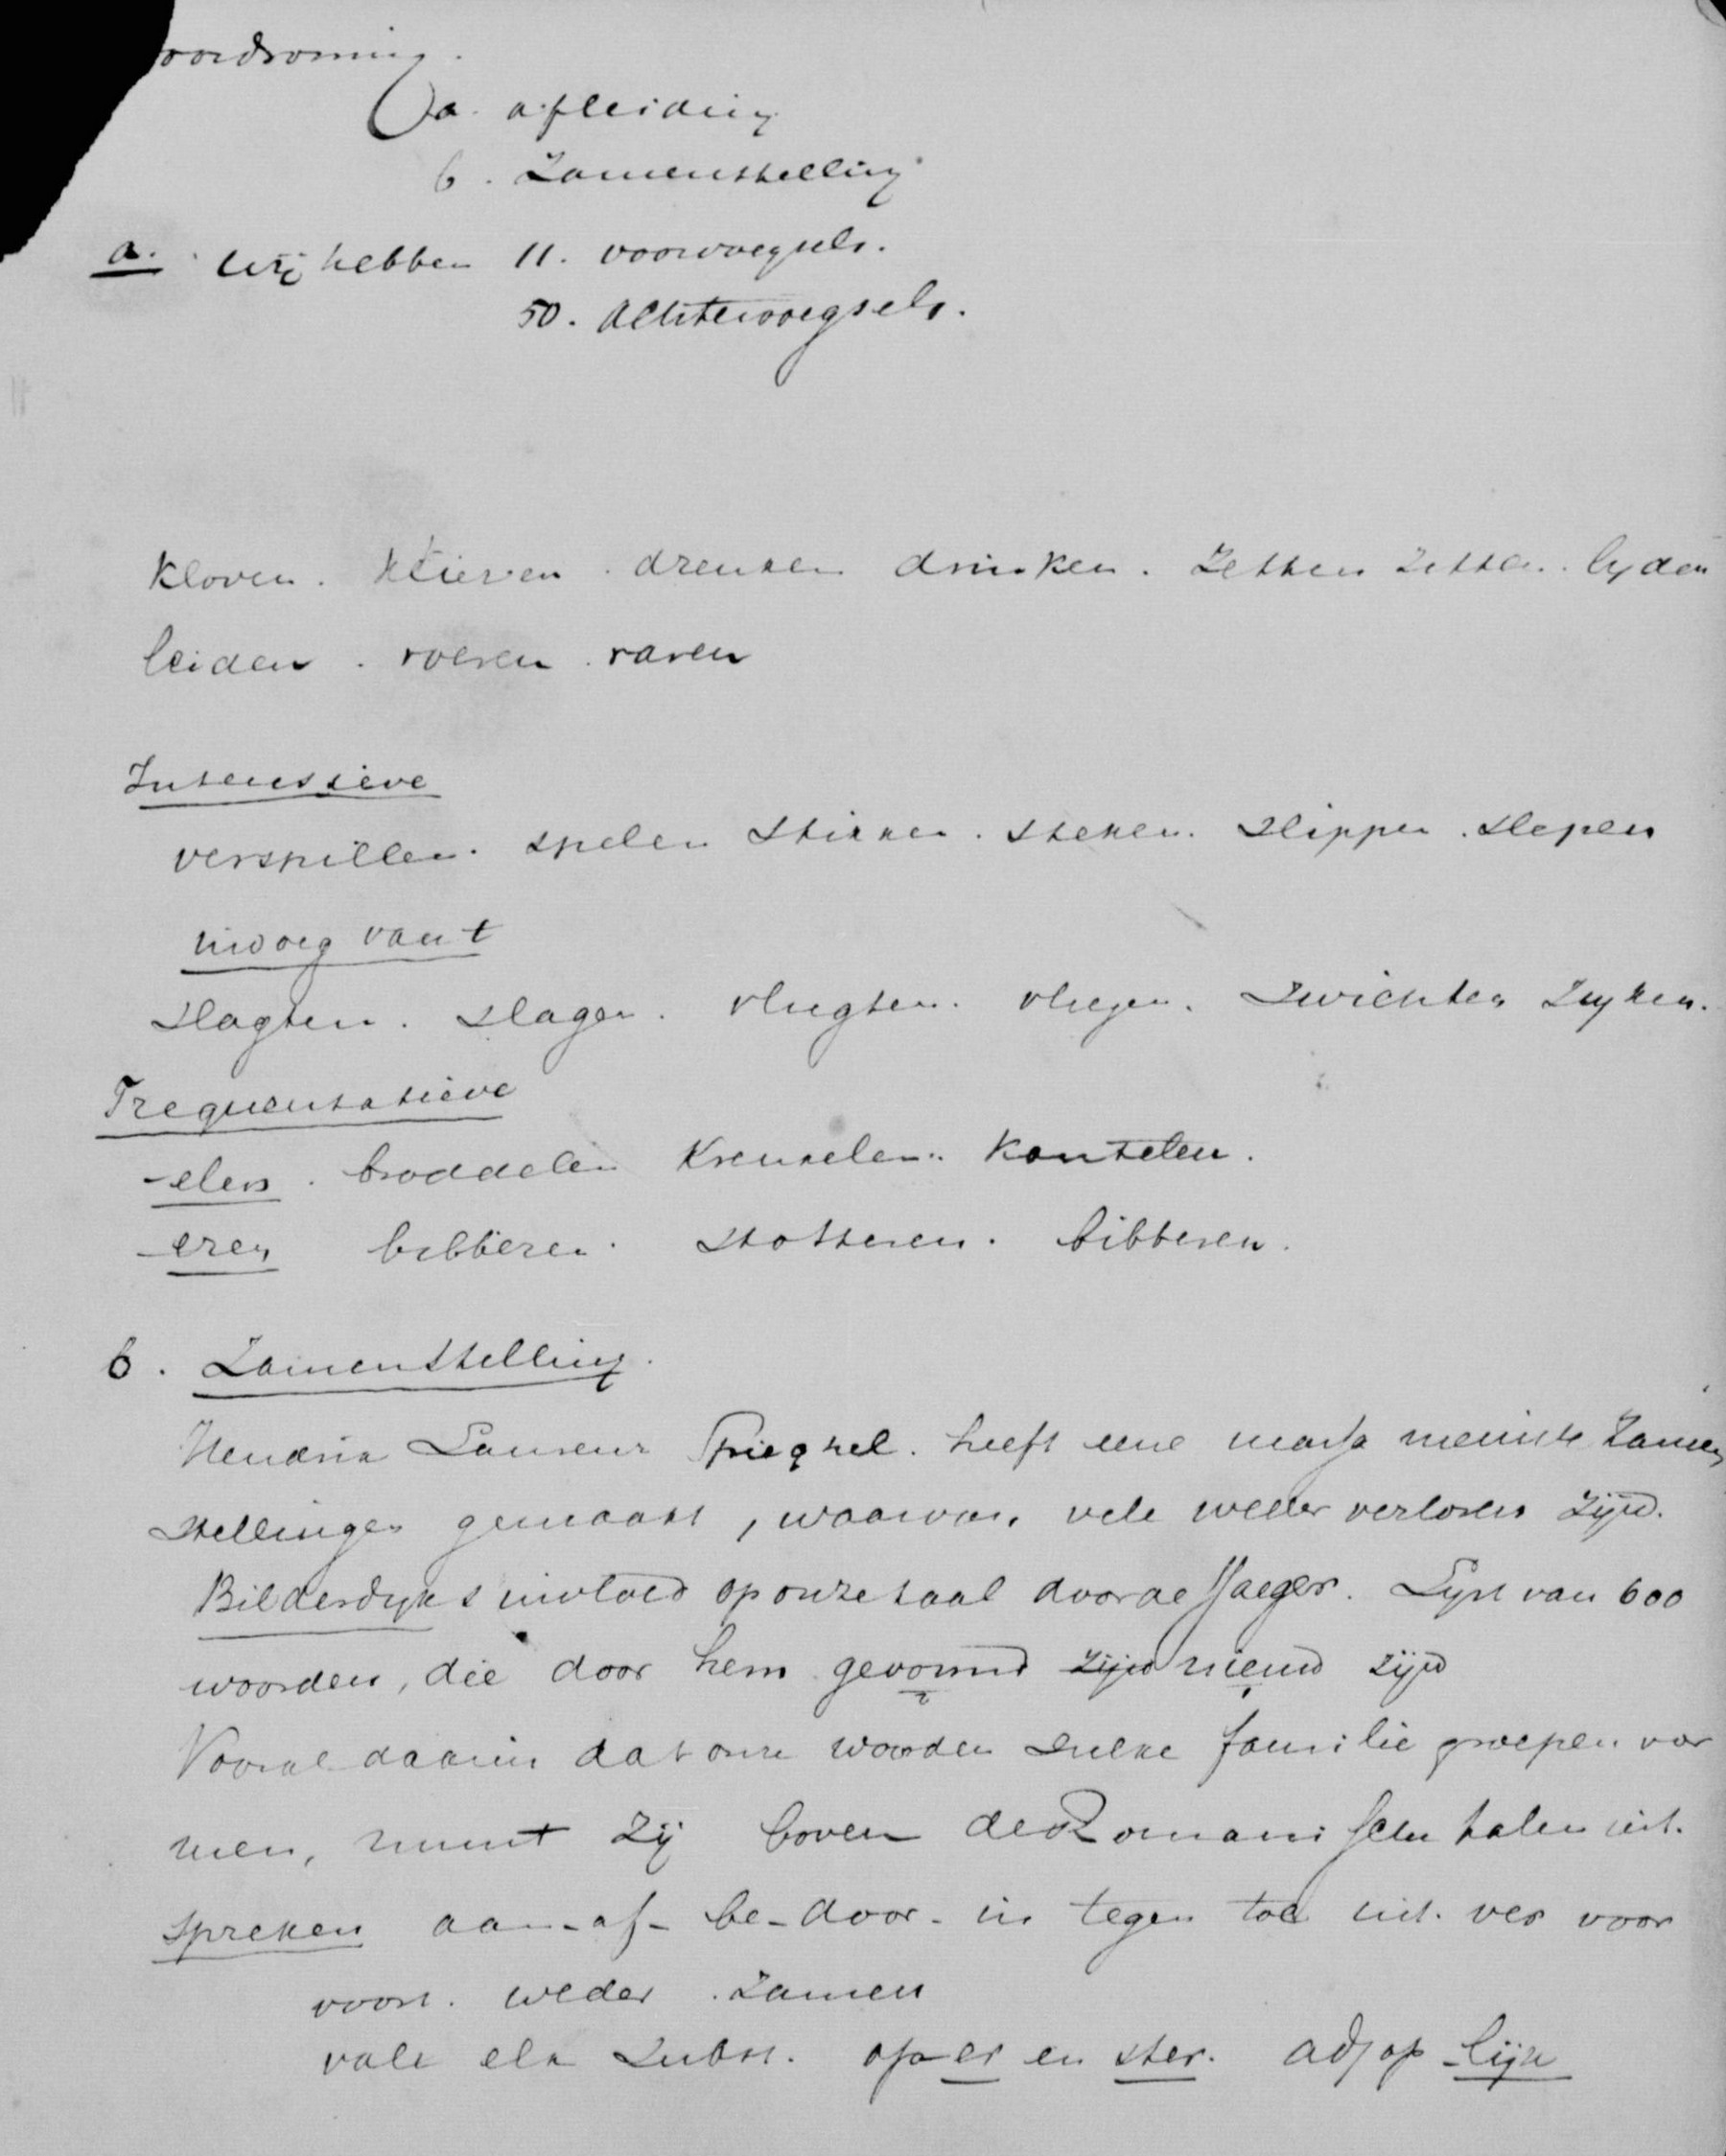 oordvorming.
a. afleiding
b. Zamenstelling
a. wij hebben 11. voorvoegsels.
50. Achtervoegsels.
kloven. klieven. drenken drinken. Zetten zitten. lyden
leiden. voeren varen
Intensieve
verspillen. spelen stikken. steken. slippen. slepen
invoeg van t
slagten. slagen. vlugten. vliegen. zwichten zwyken.
Frequentatieve
-elen. broddelen krenkelen. kantelen.
-eren bibberen. stotteren. bibberen.
b. Zamenstelling.
Hendrik Laurens Spieghel. heeft eene massa nieuwe Zamen
stellingen gemaakt, waarvan vele weder verloren zijn.
Bilderdyks invloed op onze taal door de Jaeger. Lyst van 600
woorden, die door hem gevormd zijn nieuw zijn
Vooral daarin dat onze woorden zulke familie groepen vor
men, munt zij boven de Romanischen talen uit.
spreken aan- af- be- door- in tegen toe uit. ver voor
voort. weder. zamen
valt elk subst. op er en ster. adj op -lijk